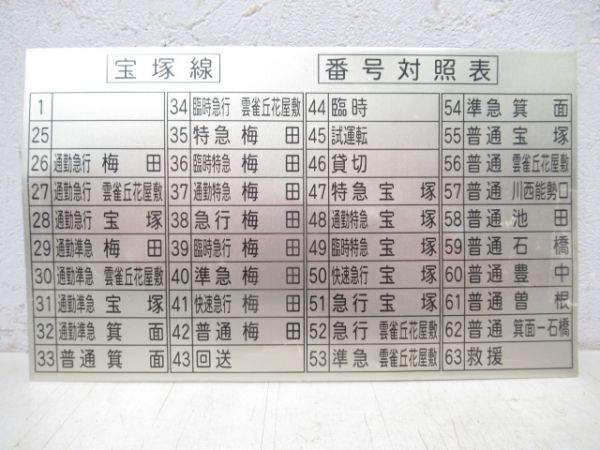 宝塚線 番号対照表
1
25
26 通勤急行 梅田
27 通勤急行 雲雀丘花屋敷
28 通勤急行 宝塚
29 通勤準急 梅田
30 通勤準急 雲雀丘花屋敷
31 通勤準急 宝塚
32 通勤準急 箕面
33 普通 箕面
34 臨時急行 雲雀丘花屋敷
35 特急 梅田
36 臨時特急 梅田
37 通勤特急 梅田
38 急行 梅田
39 臨時急行 梅田
40 準急 梅田
41 快速急行 梅田
42 普通 梅田
43 回送
44 臨時
45 試運転
46 貸切
47 特急 宝塚
48 通勤特急 宝塚
49 臨時特急 宝塚
50 快速急行 宝塚
51 急行 宝塚
52 急行 雲雀丘花屋敷
53 準急 雲雀丘花屋敷
54 準急 箕面
55 普通 宝塚
56 普通 雲雀丘花屋敷
57 普通 川西能勢口
58 普通 池田
59 普通 石橋
60 普通 豊中
61 普通 曽根
62 普通 箕面－石橋
63 救援